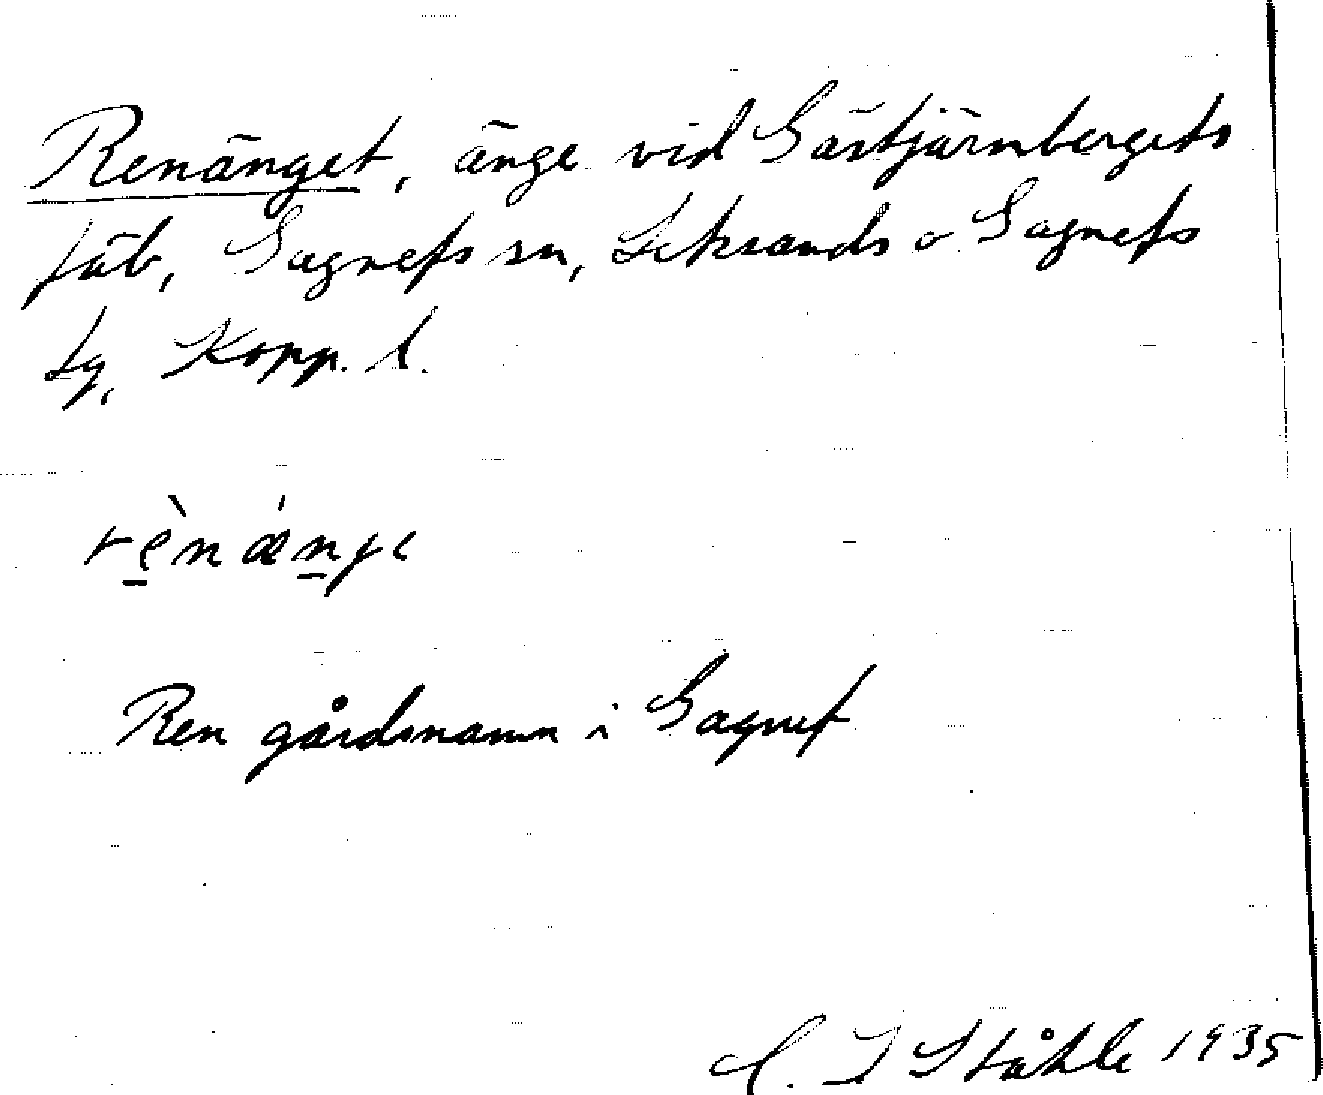 Renänget, änge vid Gästjärnbergets
fäb, Gagnefs sn, Leksands o Gagnefs
tg, Kopp. l.
rènǽnje
Ren gårdsnamn i Gagnef
C. I Ståhle 1935